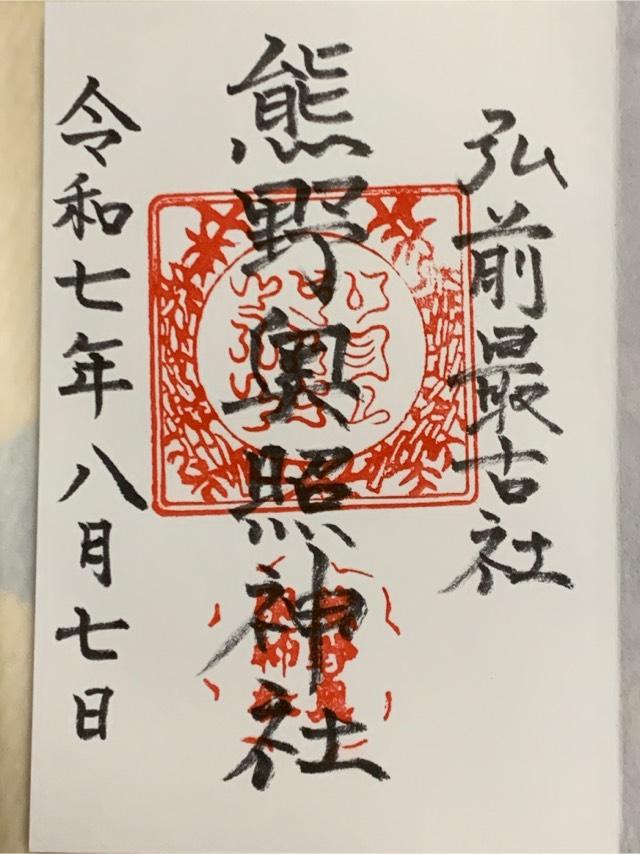 弘前最古社
熊野奥照神社
令和七年八月七日